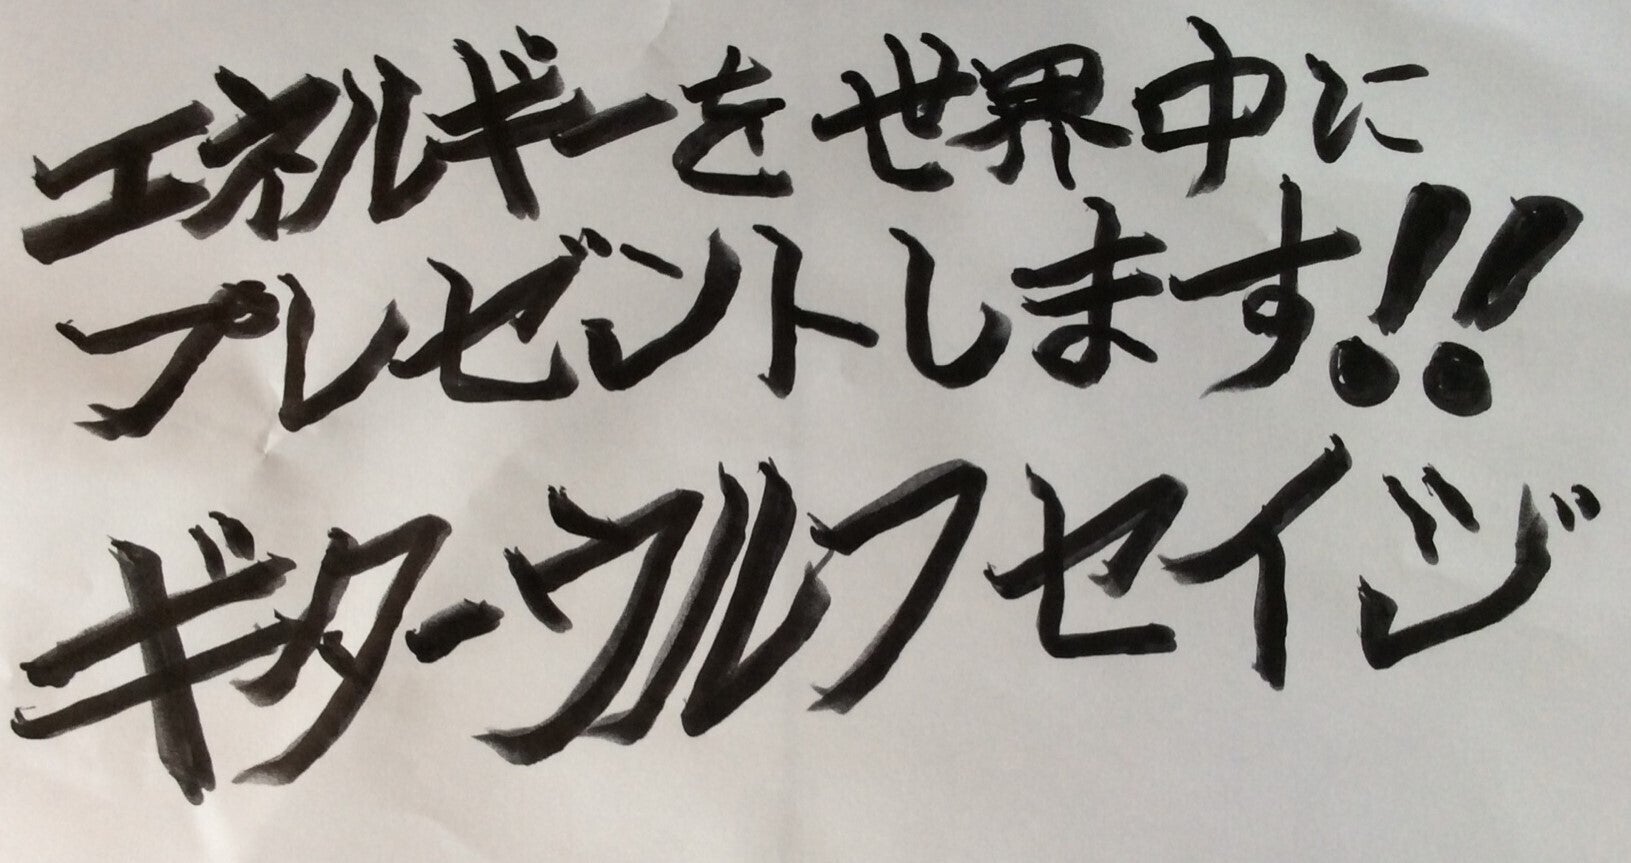 エネルギーを世界中に
プレゼントします!!
ギターウルフセイジ